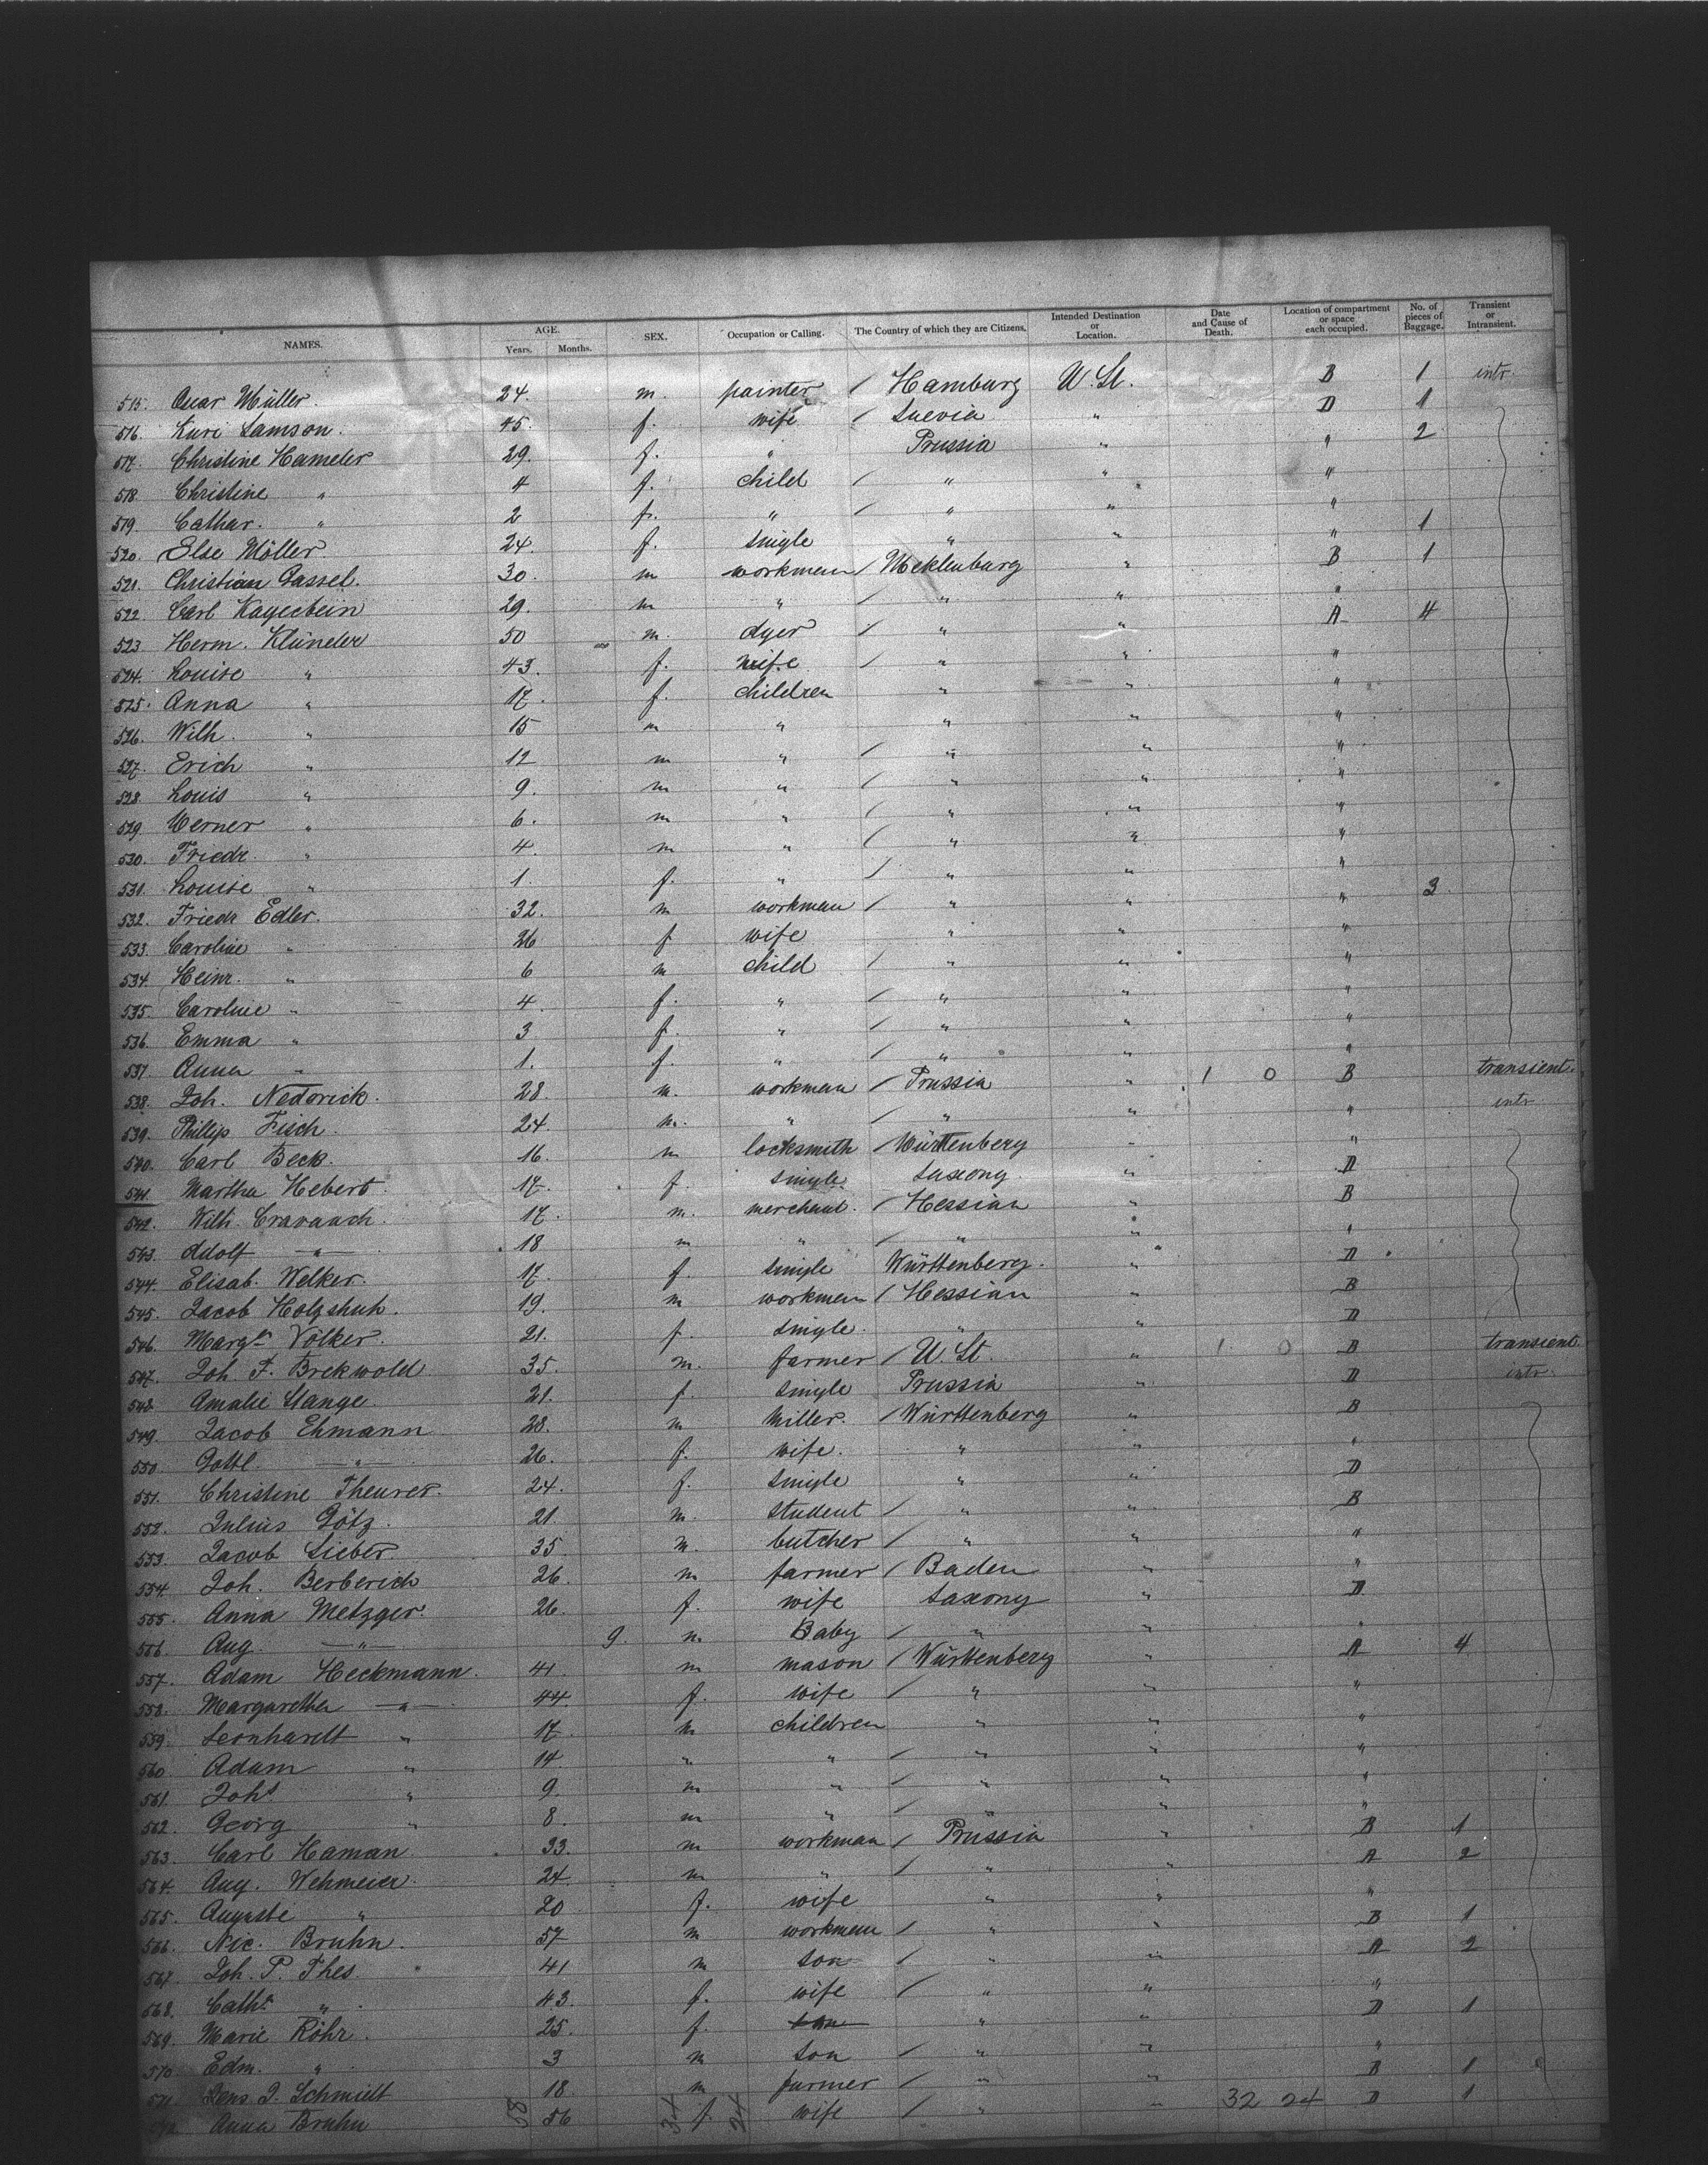 NAMES. AGE. Years. Months. SEX. Occupation or Calling. The Country of which they are Citizens. Intended Destination or Location. Date and Cause of Death. Location of compartment or space each occupied. No. of pieces of Baggage. Transient or Intransient.
515. Oscar Müller. 24. m. painter / Hamburg U. St. B 1 intr.
516. Kuri Samson. 45. f. wife / Suevia " D 1
517. Christine Hameler 29. f. " Prussia " " 2
518. Christine " 4 f. child / " " "
519. Cathar. " 2 f. " / " " "
520. Else Möller 24. f. single " " " 1
521. Christian Gassel. 30. m workman / Mecklenburg " B 1
522. Carl Kayecbein 29. m " / " " "
523 Herm. Klündler 50 m. dyer / " " A 4
524. Louise " 43. f. wife / " " "
525. Anna " 17. f. children " " "
526. Wilh. " 15 m " " " "
527. Erich " 12 m " / " " "
528. Louis " 9. m " / " " "
529. Werner " 6. m " / " " "
530. Friedr. " 4. m " / " " "
531. Louise " 1. f. " / " " "
532. Friedr Edler. 32. m workman / " " " 3
533. Caroline " 26 f wife " " "
534. Heinr. " 6 m child / " " "
535. Caroline " 4. f. " / " " "
536. Emma " 3 f. " / " " "
537. Anna " 1. f. " / " " "
538. Joh. Nedorick. 28. m. workman / Prussia " 1 0 B transient.
539. Phillip Fisch. 24. m. " / " " " intr
540. Carl Beck. 16. m locksmith / Württenberg " "
541. Martha Hebert. 17. f. single Saxony. " D
542. Wilh. Cravaach. 17. m. merchant. / Hessian " B
543. Adolf " 18 m " / " " "
544. Elisab. Welker. 17. f. single Württenberg. " D
545. Jacob Holzshuh. 19. m workman / Hessian " B
546. Margr. Völker. 21. f. single. " " D
547. Joh. F. Brekwold 35. m. farmer / U. St. " 1 0 B transient.
548. Amalie Stange 21. f. single Prussia " D intr.
549. Jacob Ehmann 28. m Miller. / Württenberg " B
550. Gottl. " 26. f. wife. " " "
551. Christine Theurer. 24. f. single " " D
552. Julius Götz. 21. m. student / " " B
553. Jacob Sieber. 35 m. butcher / " " "
554. Joh. Berberich 26. m farmer / Baden " "
555. Anna Metzger. 26. f. wife Saxony " D
556. Aug. " 9. m. Baby / " " "
557. Adam Heckmann. 41. m mason / Württenberg " A 4
558. Margaretha " 44. f. wife / " " "
559. Leonhardt " 17. m children " " "
560. Adam " 14 " " / " " "
561. Joh. " 9. m " / " " "
562. Georg " 8. m " / " " "
563. Carl Haman 33. m workman / Prussia " B 1
564. Aug. Wehmeier. 24. m " / " " A 2
565. Auguste " 20 f. wife " " "
566. Nic. Bruhn. 57 m workman / " " B 1
567. Joh. P. Thes. 41 m son / " " A 2
568. Cath. " 43. f. wife / " " "
569. Marie Röhr. 25. f. son " " D 1
570. Edm. " 3 m son / " " "
571. Jens J. Schmidt 18 m farmer / " " B 1
572 Anna Bruhn 58 56 34 f. 24 wife / " " 32 24 D 1